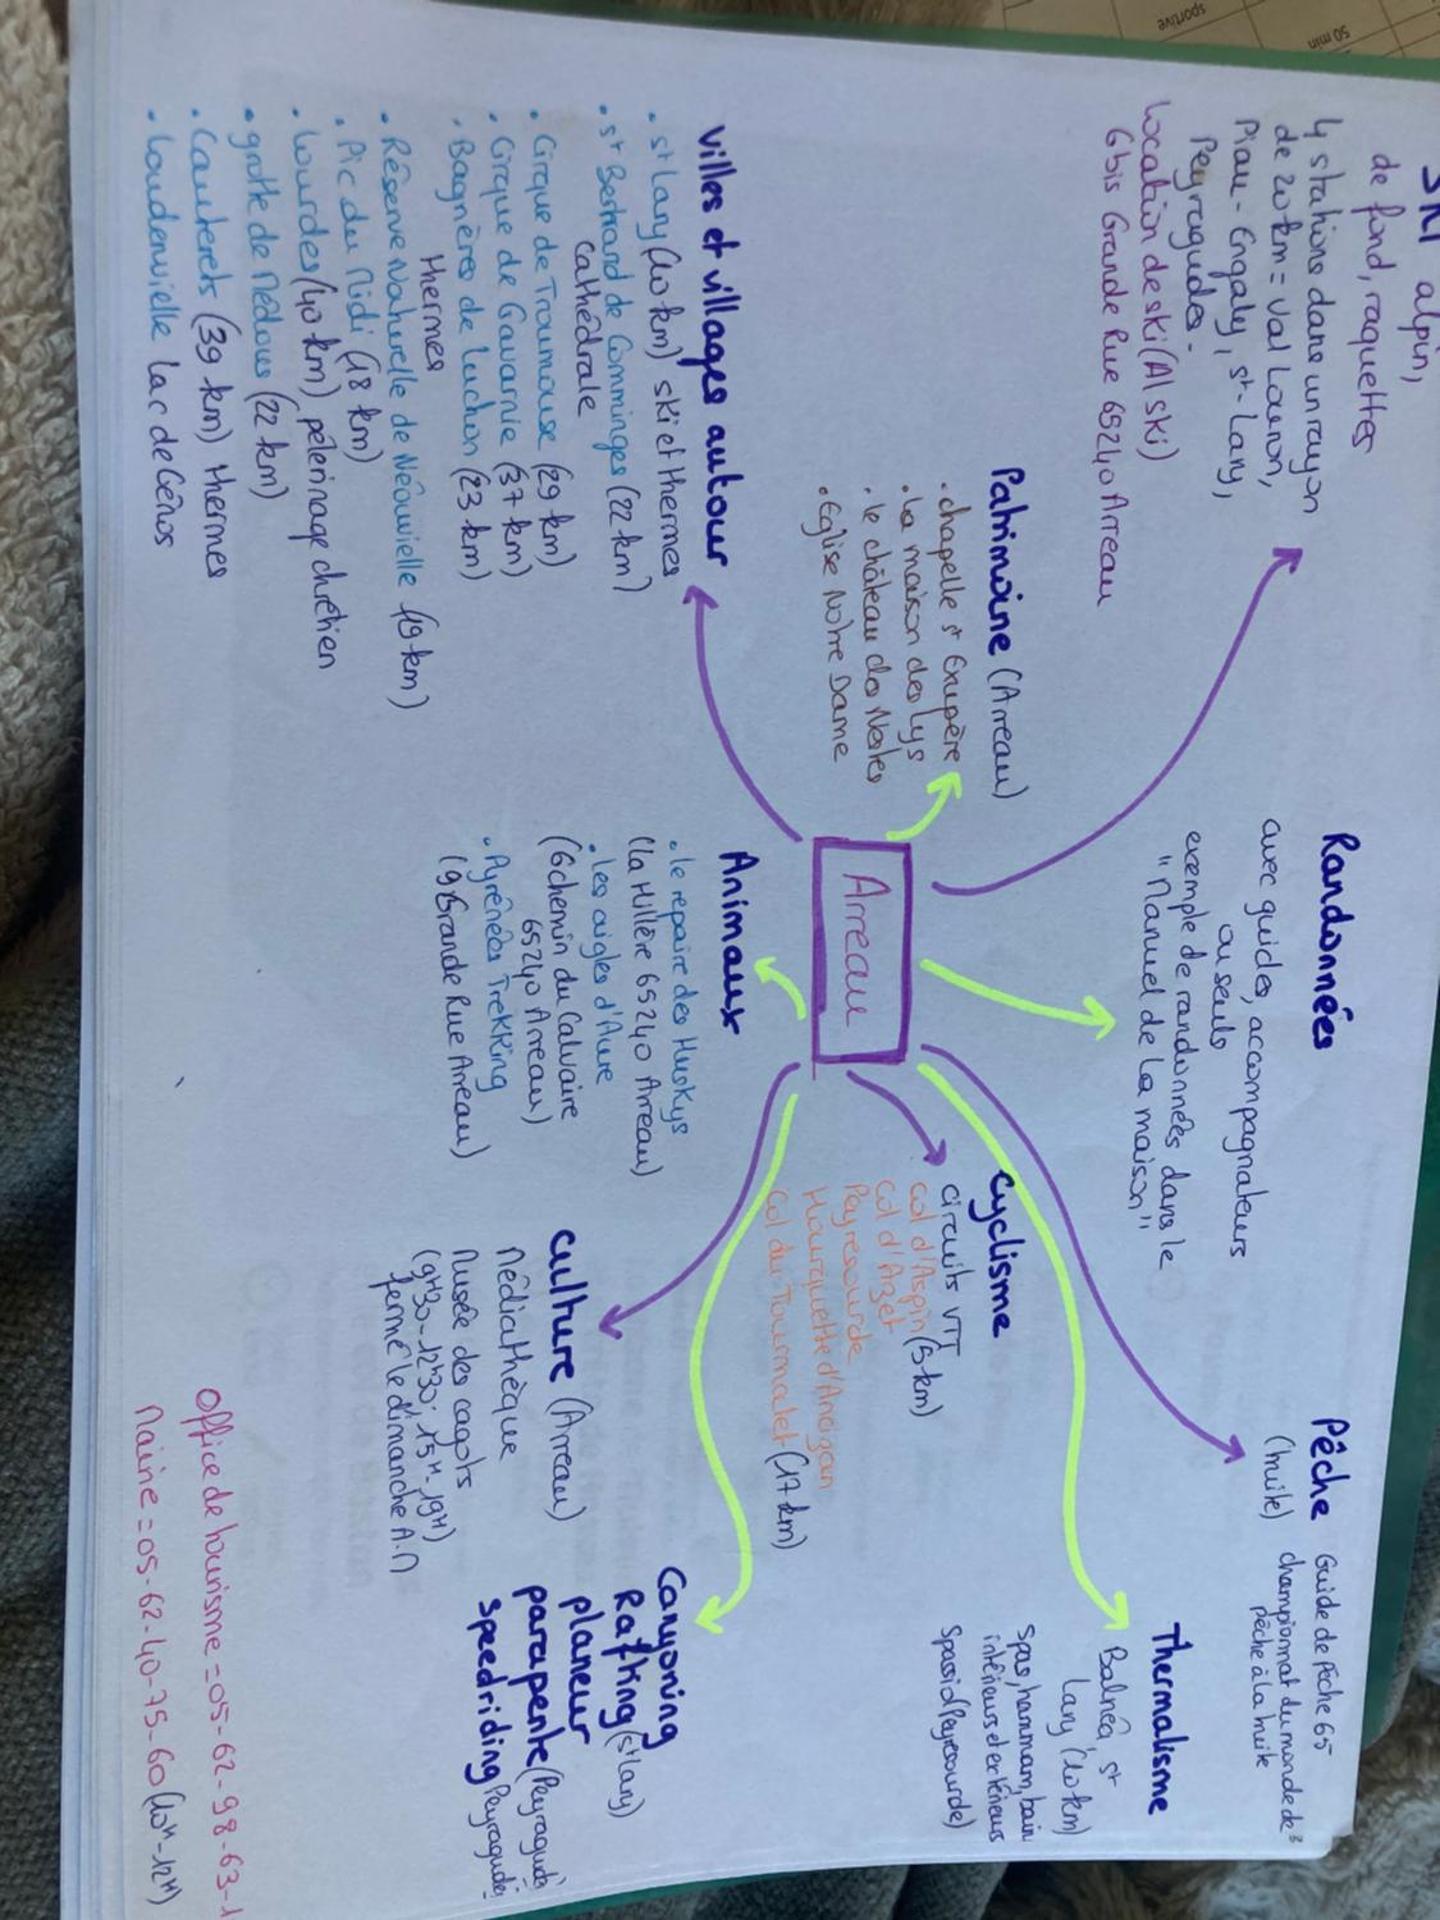 SKI alpin,
de fond, raquettes
4 stations dans un rayon
de 20 km = Val Louron,
Piau-Engaly, St-Lary,
Peyragudes.
Location de ski (Al Ski)
6 bis Grande Rue 65240 Arreau
Randonnées
avec guides, accompagnateurs
ou seuls
exemple de randonnées dans le
"Manuel de la maison"
Pêche
(truite)
Guide de Pêche 65
championnat du monde de
pêche à la truite
Thermalisme
Balnéa, St
Lary (10 km)
Spas, hammam, bain
intérieurs et extérieurs
Patrimoine (Arreau)
. chapelle St Exupère
. La maison des Lys
. le château des Nestes
. Eglise Notre Dame
Arreau
Cyclisme
circuits VTT
col d'Aspin (5 km)
col d'Azet
Peyresourde
Hourquette d'Ancizan
Col du Tourmalet (17 km)
Villes et villages autour
. St Lary (10 km) ski et thermes
. St Bertrand de Comminges (22 km)
cathédrale
. Cirque de Troumouse (29 km)
. Cirque de Gavarnie (37 km)
. Bagnères de Luchon (23 km)
thermes
. Réserve Naturelle de Néouvielle (19 km)
. Pic du Midi (18 km)
. Lourdes (40 km) pélerinage chrétien
. grotte de Médous (22 km)
. Cauterets (39 km) thermes
. Loudenvielle Lac de Génos
Animaux
. le repaire des Huskys
(la Hillère 65240 Arreau)
. les aigles d'Aure
(6 chemin du Calvaire
65240 Arreau)
. Pyrénées Trekking
(9 Grande Rue Arreau)
Culture (Arreau)
Médiathèque
Musée des cagots
(9H30-12H30; 15H-19H)
fermé le dimanche A.M
Canyoning
Rafting (St Lary)
planeur
parapente (Peyragudes
speedriding Peyragudes
Office de tourisme = 05-62-98-63-1
Mairie = 05-62-40-75-60 (10H-12H)
50 min
sportive